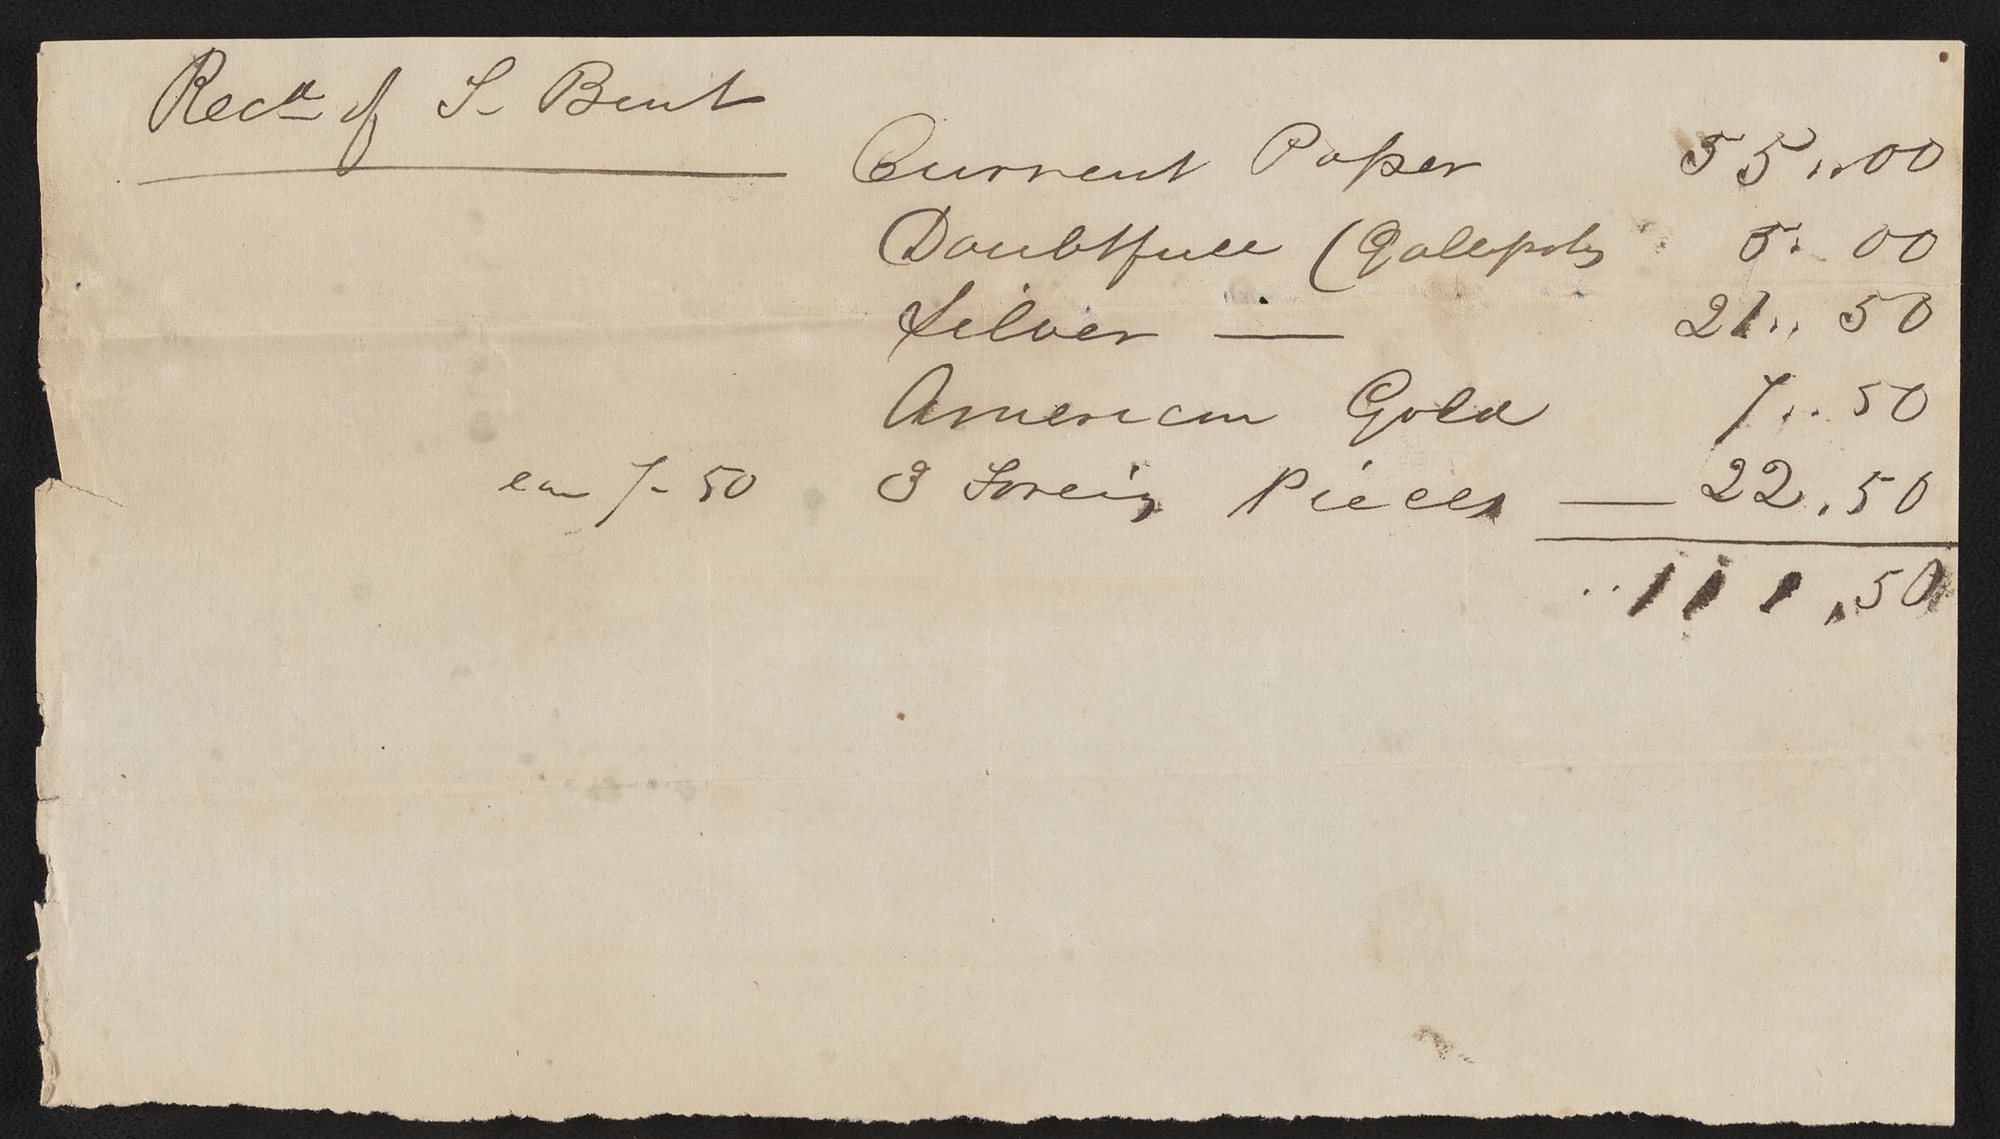 Recd of S- Bent
Current Paper 55,,00
Doubtfull (Galepolis 5. 00
Silver — 21,, 50
American Gold 7,. 50
ea 7- 50 3 Foreig Pieces — 22.50
111,50